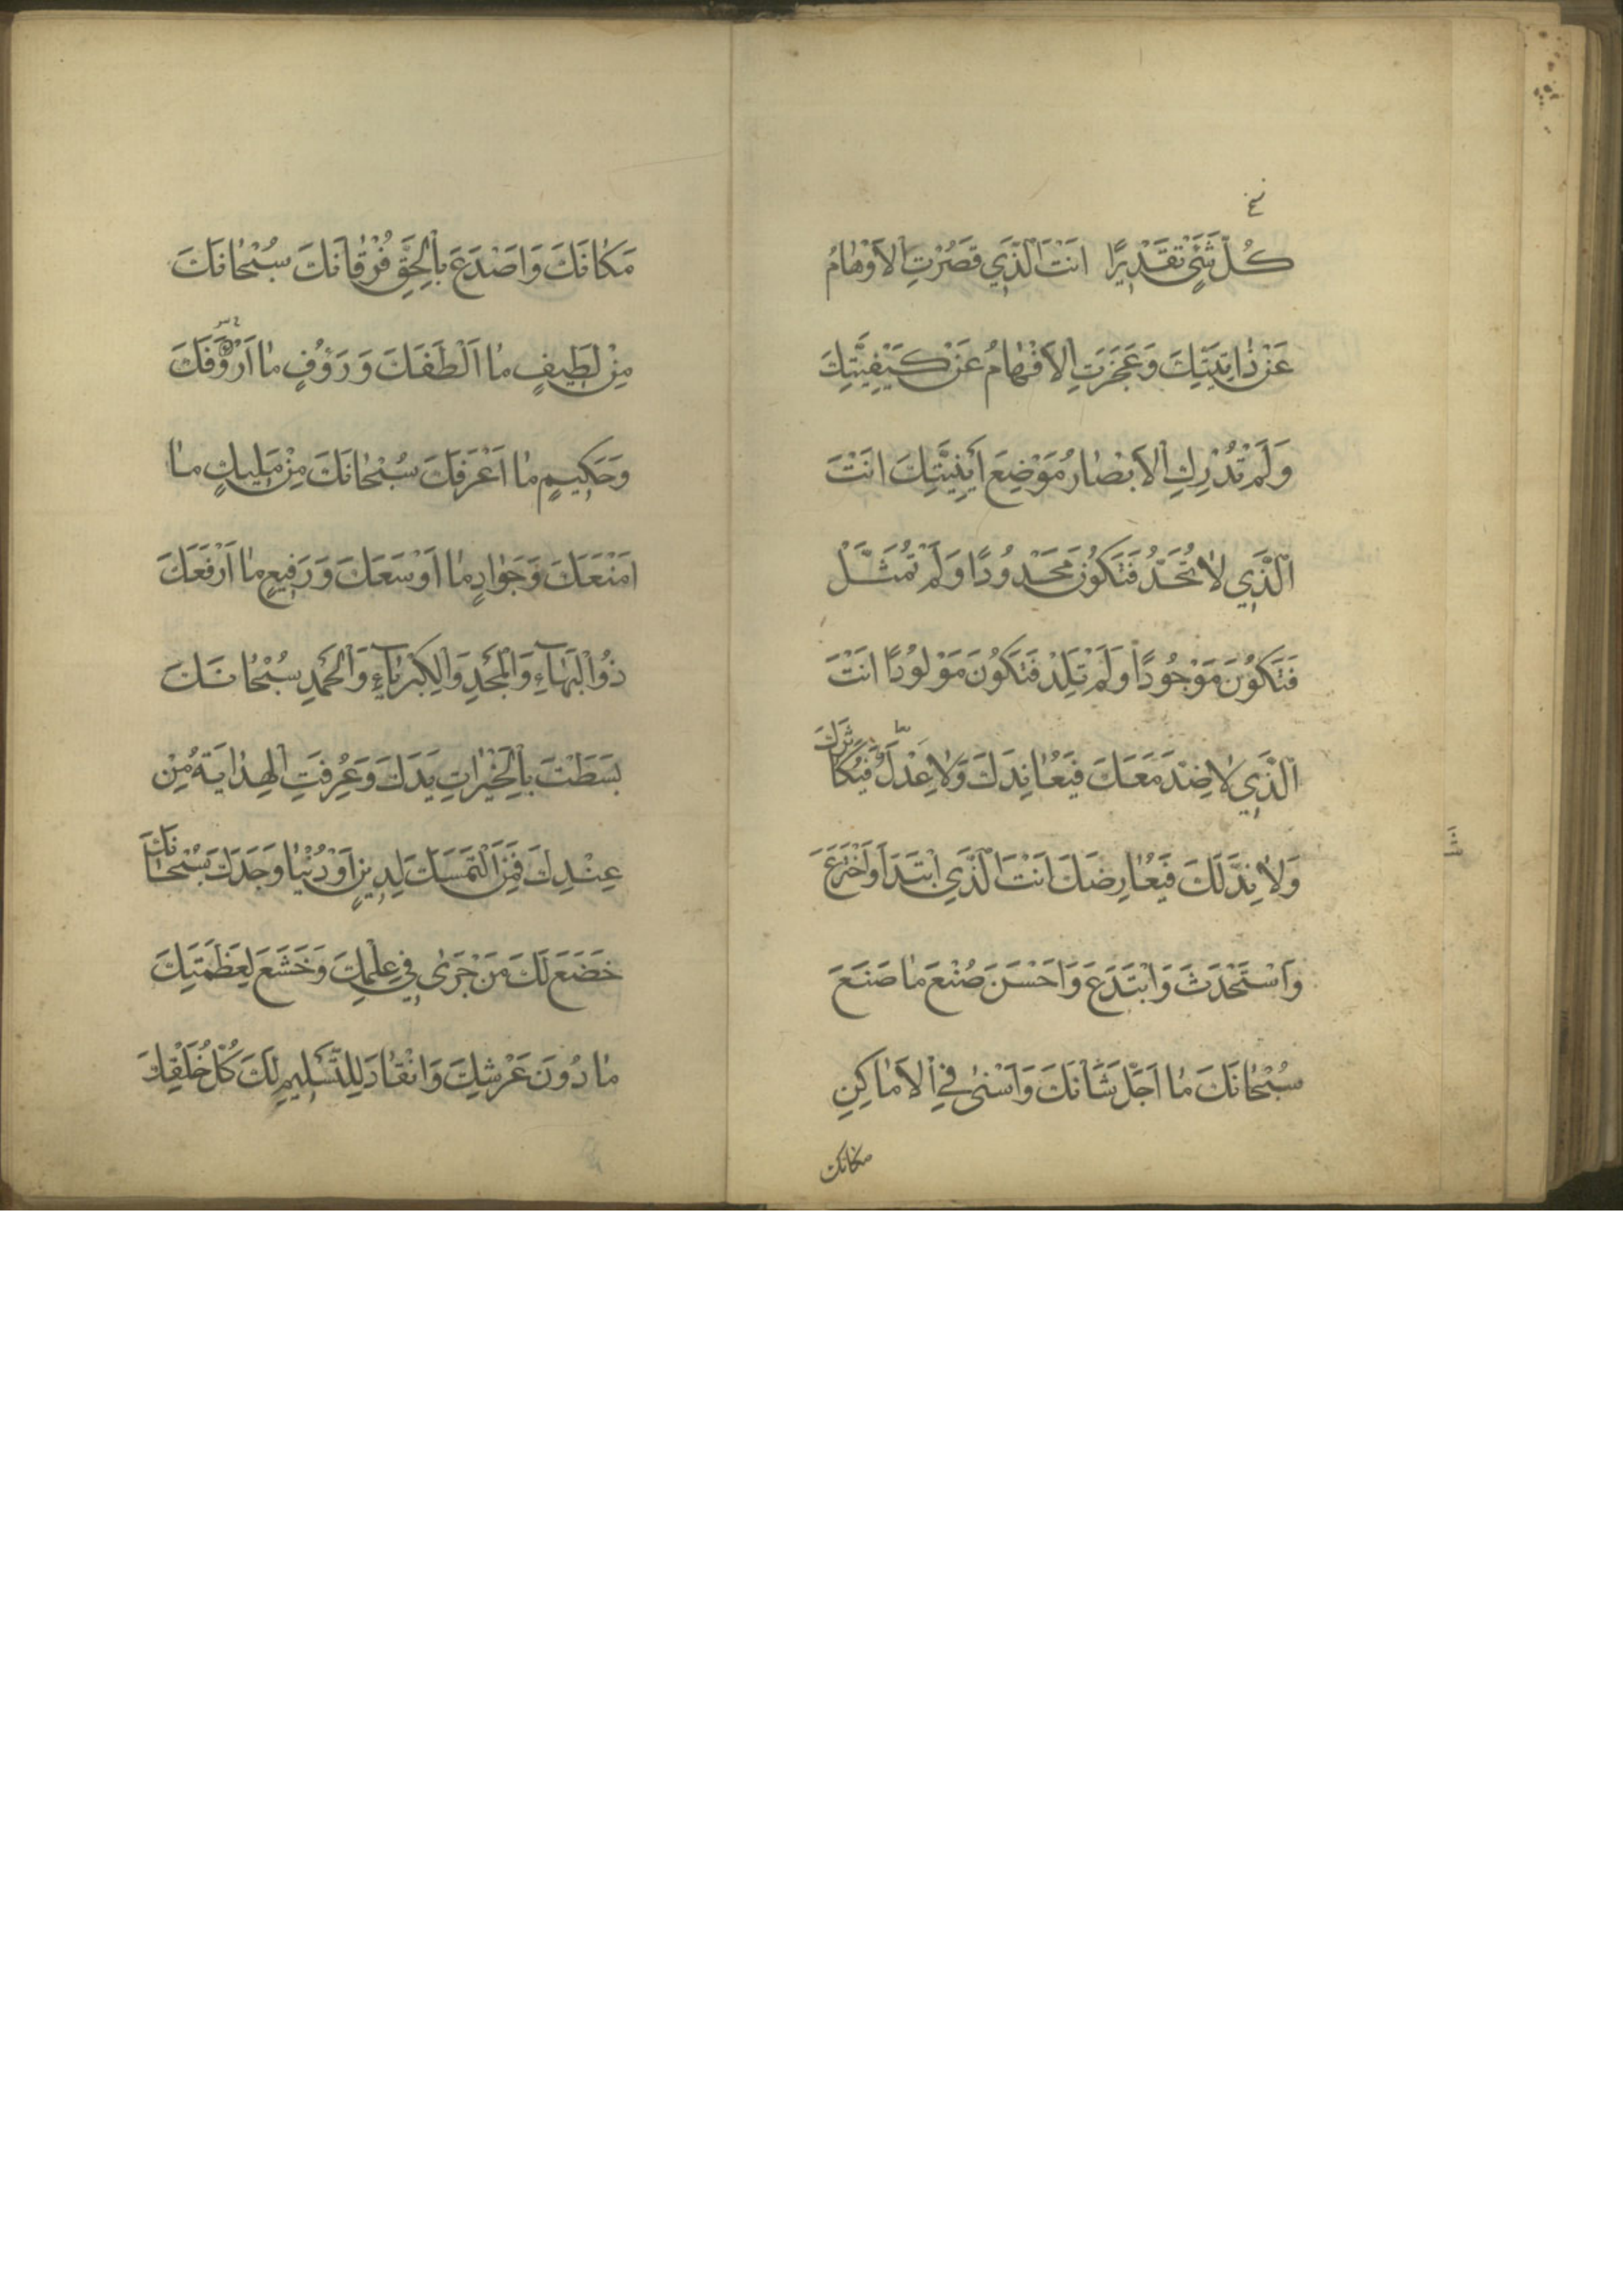 نخ
كُلَّ شَيْءٍ تَقْدِيرًا اَنْتَ الَّذِي قَصُرَتِ الْاَوْهَامُ
عَنْ ذَاتِيَّتِكَ وَعَجَزَتِ الْاَفْهَامُ عَنْ كَيْفِيَّتِكَ
وَلَمْ تُدْرِكِ الْاَبْصَارُ مَوْضِعَ اَيْنِيَّتِكَ اَنْتَ
الَّذِي لَا تُحَدُّ فَتَكُونَ مَحْدُودًا وَلَمْ تُمَثَّلْ
فَتَكُونَ مَوْجُودًا وَلَمْ تَلِدْ فَتَكُونَ مَوْلُودًا اَنْتَ
الَّذِي لَا ضِدَّ مَعَكَ فَيُعَانِدَكَ وَلَا عِدْلَ فَيُكَاثِرَكَ
وَلَا نِدَّ لَكَ فَيُعَارِضَكَ اَنْتَ الَّذِي ابْتَدَاَ وَاخْتَرَعَ
وَاسْتَحْدَثَ وَابْتَدَعَ وَاَحْسَنَ صُنْعَ مَا صَنَعَ
سُبْحَانَكَ مَا اَجَلَّ شَاْنَكَ وَاَسْنَى فِي الْاَمَاكِنِ
مكانك
مَكَانَكَ وَاَصْدَعَ بِالْحَقِّ فُرْقَانَكَ سُبْحَانَكَ
مِنْ لَطِيفٍ مَا اَلْطَفَكَ وَرَؤُفٍ مَا اَرْوَفَكَ
وَحَكِيمٍ مَا اَعْرَفَكَ سُبْحَانَكَ مِنْ مَلِيكٍ مَا
اَمْنَعَكَ وَجَوَادٍ مَا اَوْسَعَكَ وَرَفِيعٍ مَا اَرْفَعَكَ
ذُو الْبَهَاءِ وَالْمَجْدِ وَالْكِبْرِيَاءِ وَالْحَمْدِ سُبْحَانَكَ
بَسَطْتَ بِالْخَيْرَاتِ يَدَكَ وَعُرِفَتِ الْهِدَايَةُ مِنْ
عِنْدِكَ فَمَنِ الْتَمَسَكَ لِدِينٍ اَوْ دُنْيَا وَجَدَكَ سُبْحَانَكَ
خَضَعَ لَكَ مَنْ جَرَى فِي عِلْمِكَ وَخَشَعَ لِعَظَمَتِكَ
مَا دُونَ عَرْشِكَ وَانْقَادَ لِلتَّسْلِيمِ لَكَ كُلُّ خَلْقِكَ